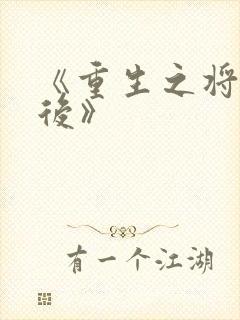 《重生之将
後》
有一个江湖